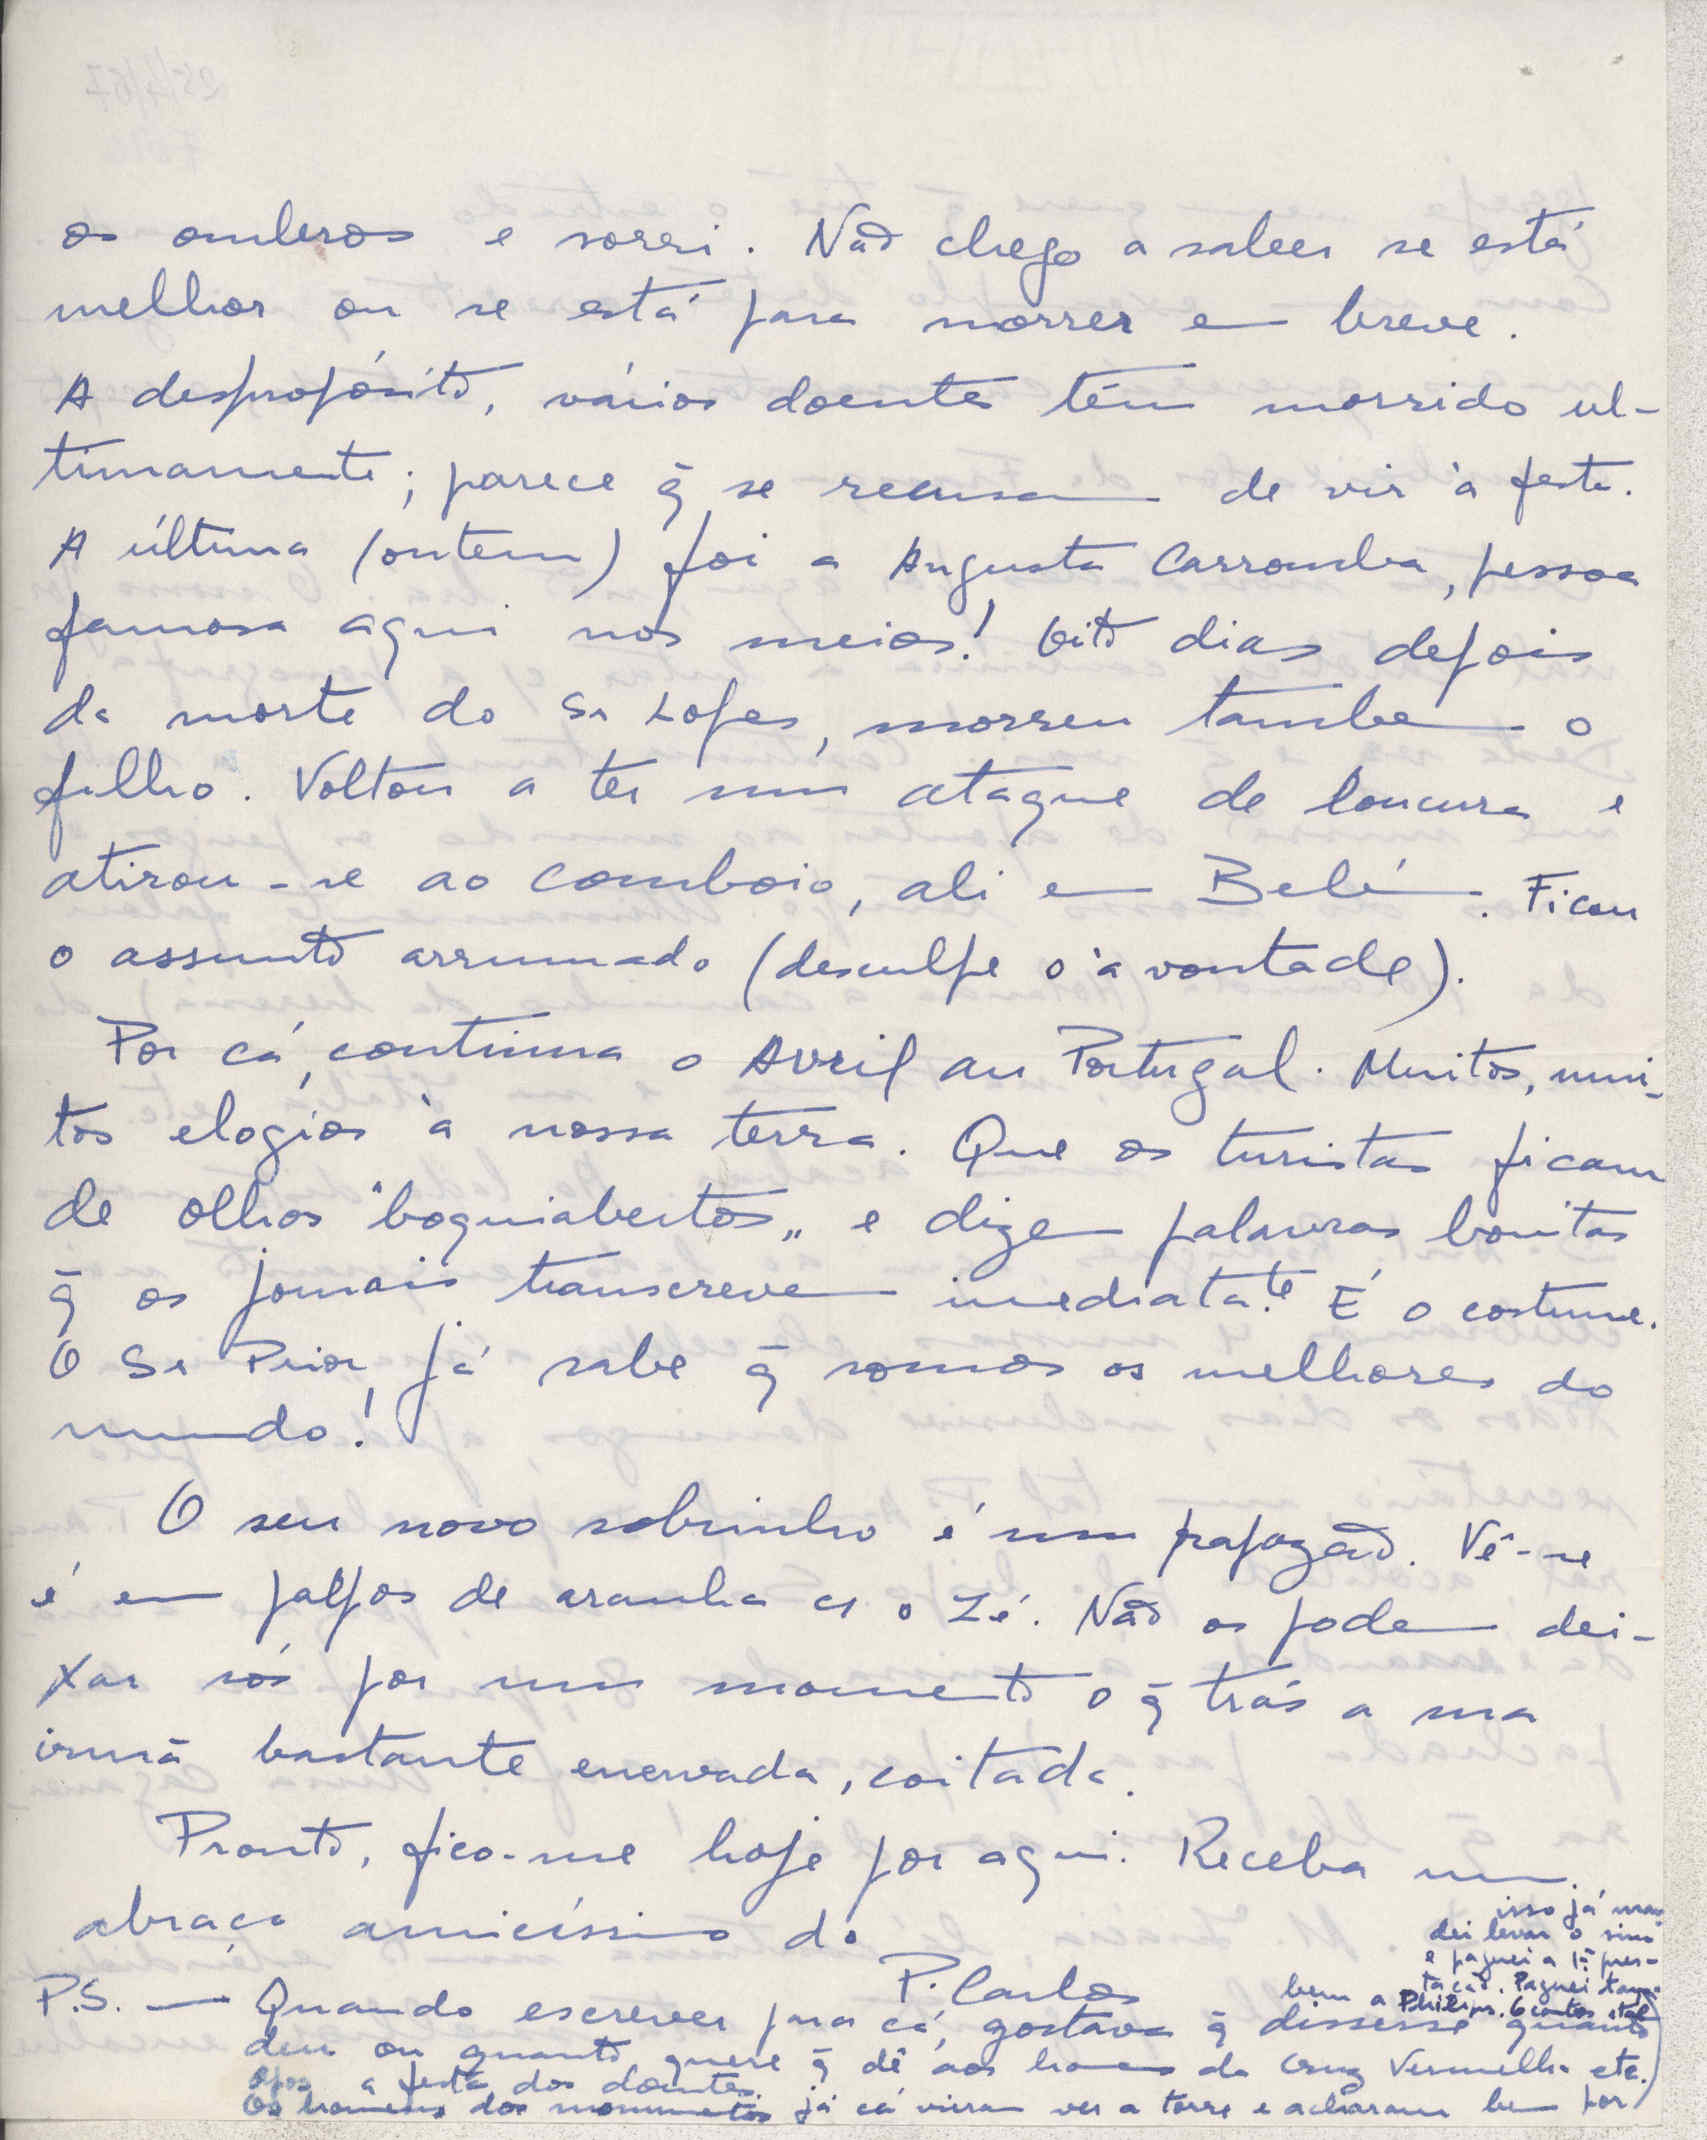 os ombros e sorri. Não chego a saber se está
melhor ou se está para morrer em breve.
A despropósito, vários doentes têm morrido ul-
timamente; parece q̃ se recusam de vir à festa.
A última (ontem) foi a Augusta Carromba, pessoa
famosa aqui nos meios! Oito dias depois
da morte do Sr Lopes, morreu também o
filho. Voltou a ter um ataque de loucura e
atirou-se ao comboio, ali em Belém. Ficou
o assunto arrumado (desculpe o à vontade).
Por cá, continua o Avril au Portugal. Muitos, mui-
tos elogios à nossa terra. Que os turistas ficam
de olhos "boquiabertos" e dizem palavras bonitas
q̃ os jornais transcrevem imediata.te É o costume.
O Sr Prior já sabe q̃ somos os melhores do
mundo!
O seu novo sobrinho é um papagaão. Vê-se
é em palpos de aranha c/ o Zé. Não os podem dei-
xar sós por um momento o q̃ trás a sua
irmã bastante enervada, coitada.
Pronto, fico-me hoje por aqui. Receba um
abraço amicíssimo do
P. Carlos
P.S. — Quando escrever para cá, gostava q̃ dissesse quanto
deu ou quanto quere q̃ dê aos homens da Cruz Vermelha etc.
após a festa dos doentes.
Os homens dos monumentos já cá vieram ver a torre e acharam bem por
isso já man-
dei levar o sino
e paguei a 1ª pres-
tação. Paguei tam-
bem a Philips. 6 contos e tal